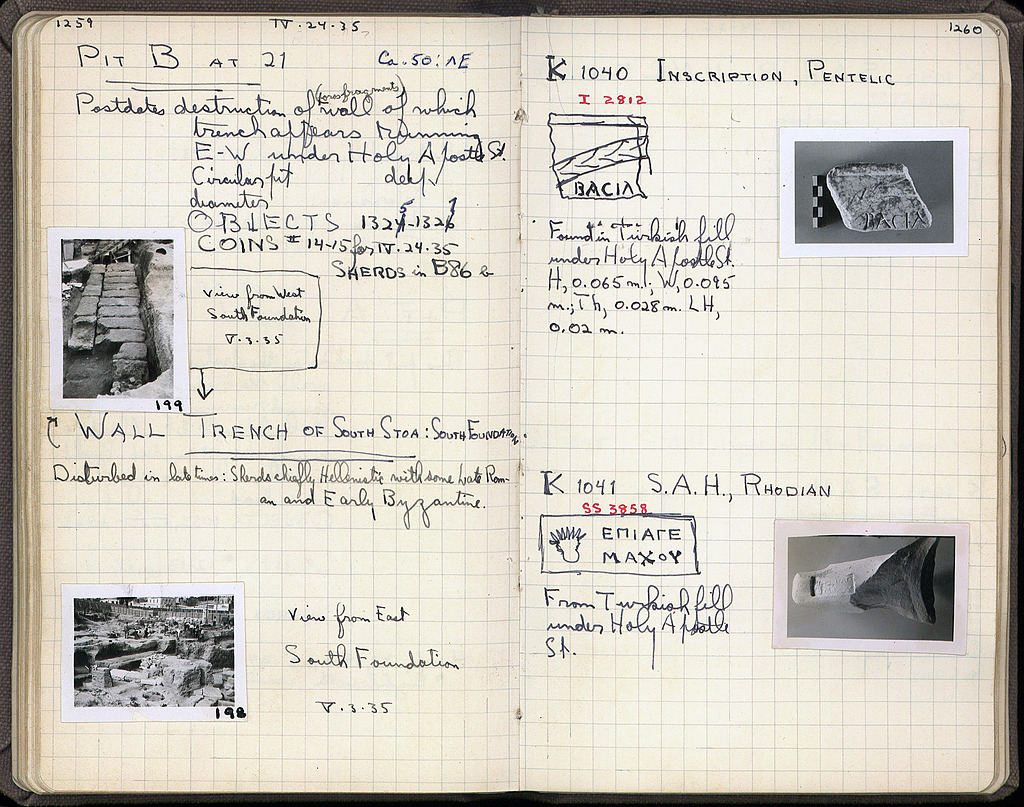 1259
IV.24.35
PIT B AT 21
Ca. 50:ΛE
(poros fragments)
Postdates destruction of wall of which
trench appears running
E-W under Holy Apostle St.
Circular pit deep
diameter
OBJECTS 1325-1327
COINS # 14-15 for IV.24.35
SHERDS in B86
View from West
South Foundation
V.3.35
199
WALL TRENCH OF SOUTH STOA: SOUTH FOUNDATION.
Disturbed in late times: Sherds chiefly Hellenistic with some Late Rom-
an and Early Byzantine.
View from East
South Foundation
V.3.35
198
1260
K 1040 INSCRIPTION, PENTELIC
I 2812
ΒΑCΙΛ
ΒΑCΙΛ
Found in Turkish fill
under Holy Apostle St.
H, 0.065 m.; W, 0.095
m.; Th, 0.028 m. LH,
0.02 m.
K 1041 S.A.H., RHODIAN
SS 3858
ΕΠΙΑΓΕ
ΜΑΧΟΥ
From Turkish fill
under Holy Apostle
St.